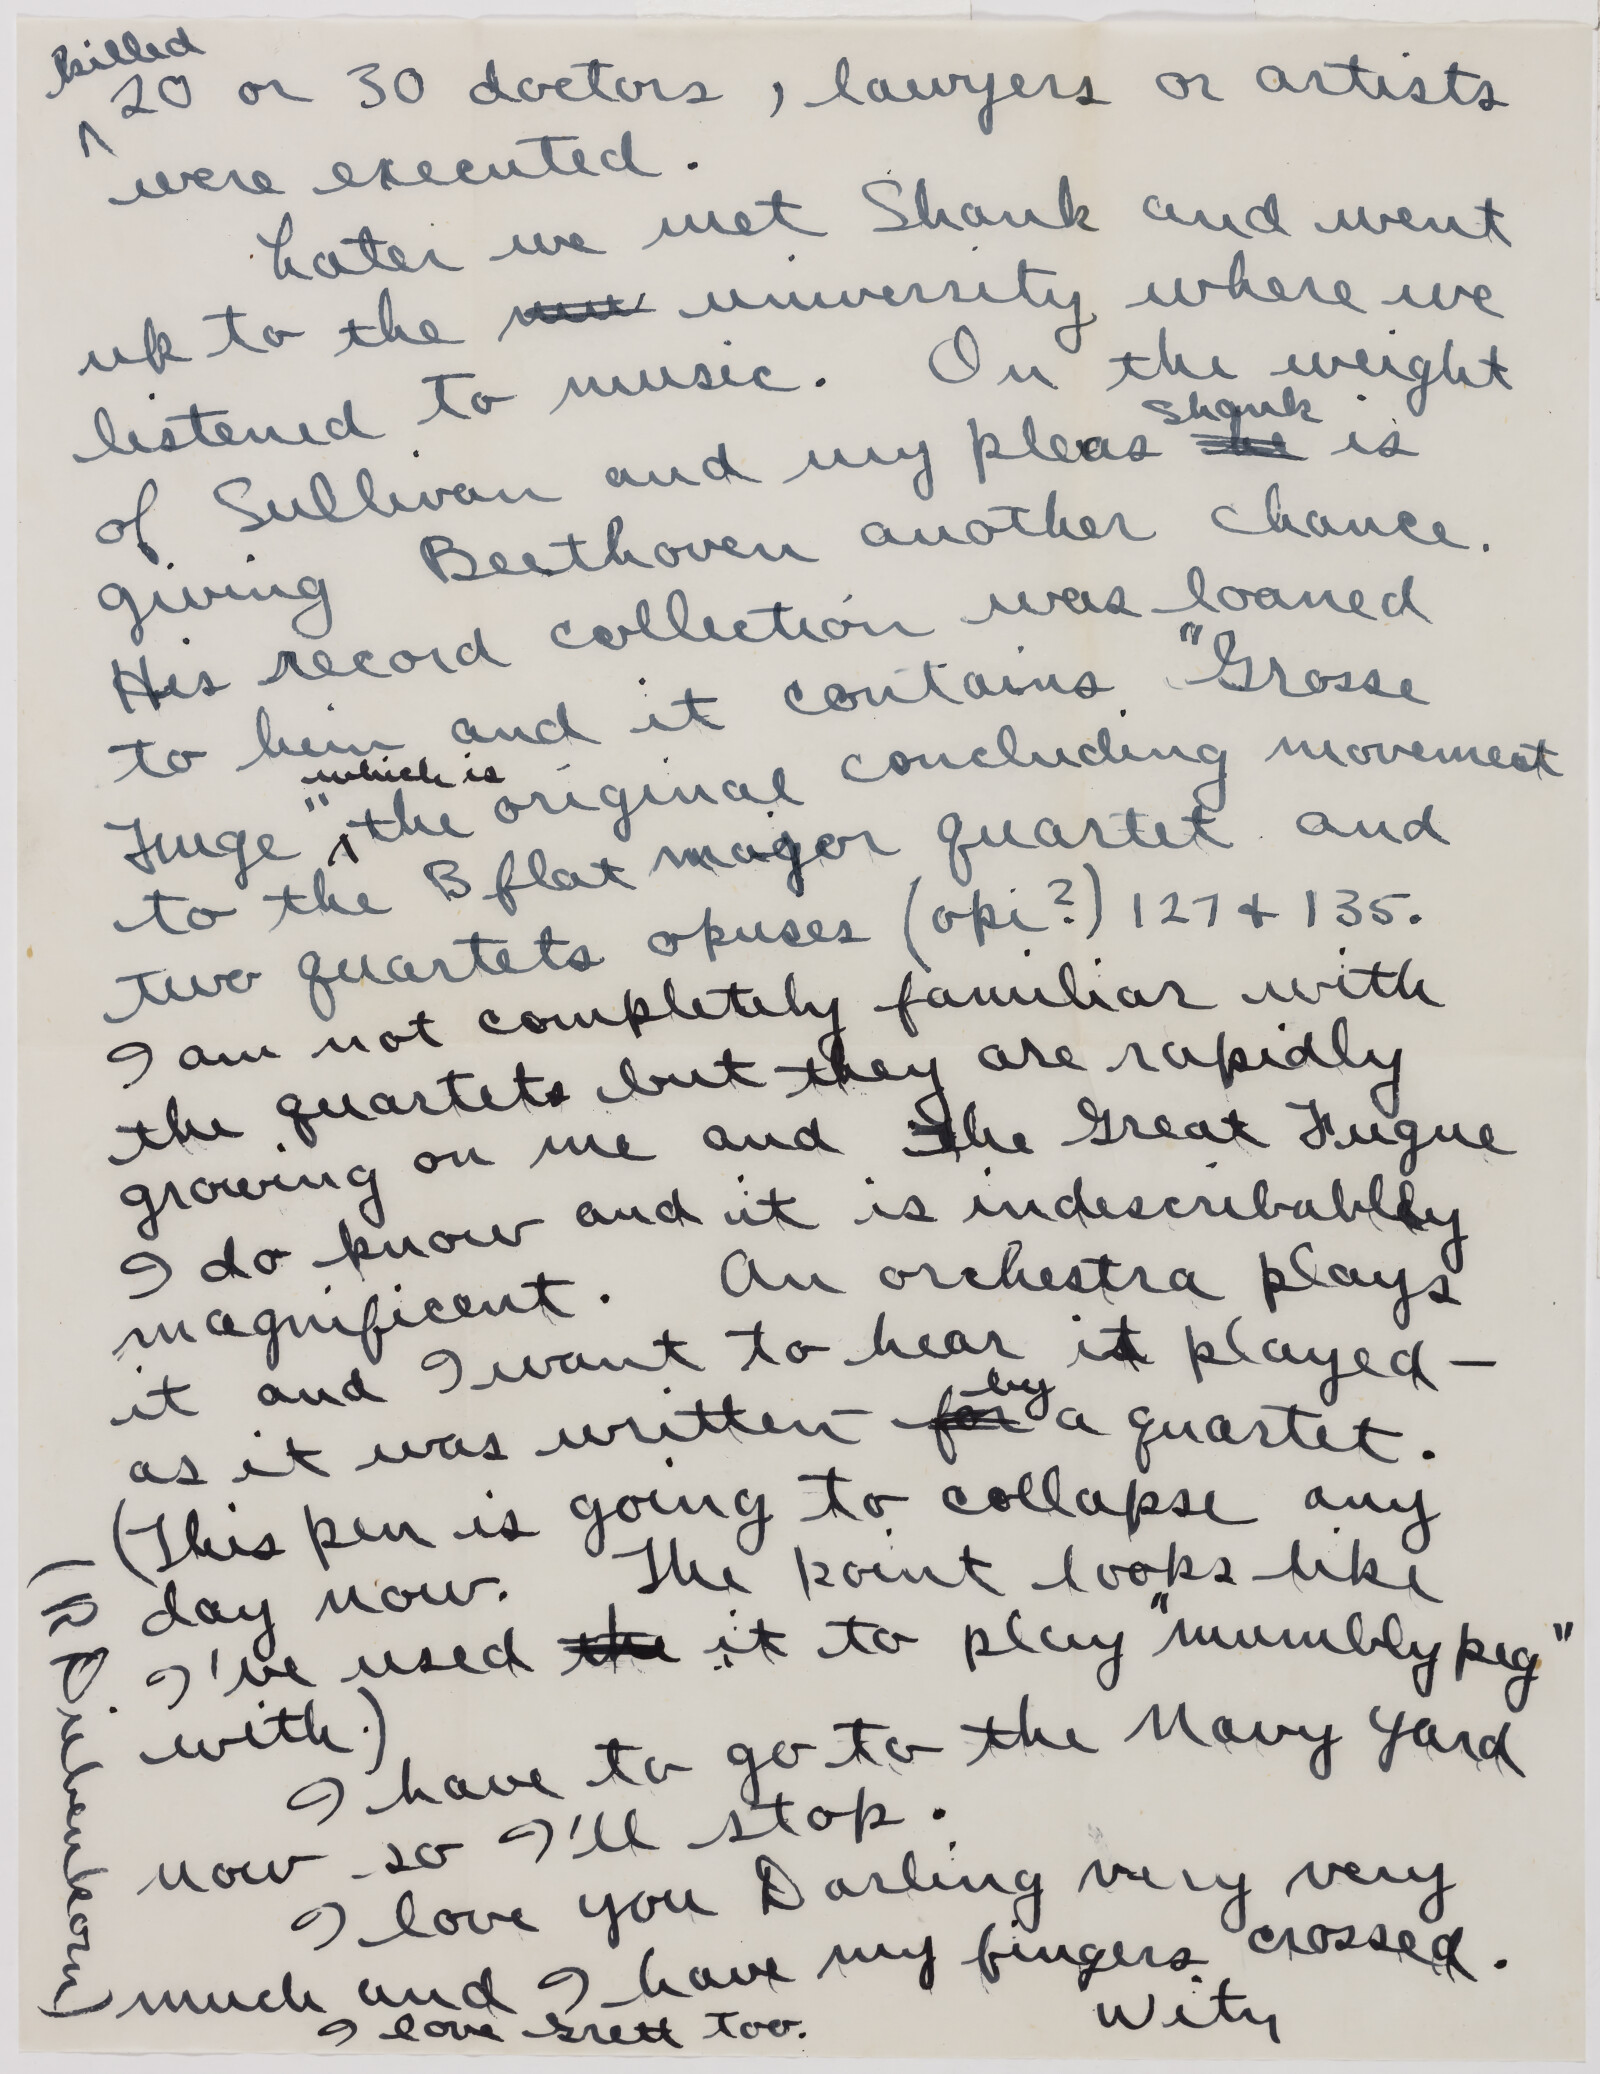 killed
20 or 30 doctors, lawyers or artists
were executed.
Later we met Shank and went
up to the university where we
listened to music. On the weight
of Sullivan and my pleas Shank is
giving Beethoven another chance.
His record collection was loaned
to him and it contains "Grosse
Fuge" which is the original concluding movement
to the B flat major quartet and
two quartets opuses (opi?) 127 & 135.
I am not completely familiar with
the quartets but they are rapidly
growing on me and the Great Fugue
I do know and it is indescribablly
magnificent. An orchestra plays
it and I want to hear it played —
as it was written for by a quartet.
(This pen is going to collapse any
day now. The point looks like
I've used the it to play "mumbly peg"
with.)
I have to go to the Navy Yard
now so I'll stop.
I love you Darling very very
much and I have my fingers crossed.
I love Grett too.
(R Diebenkorn)